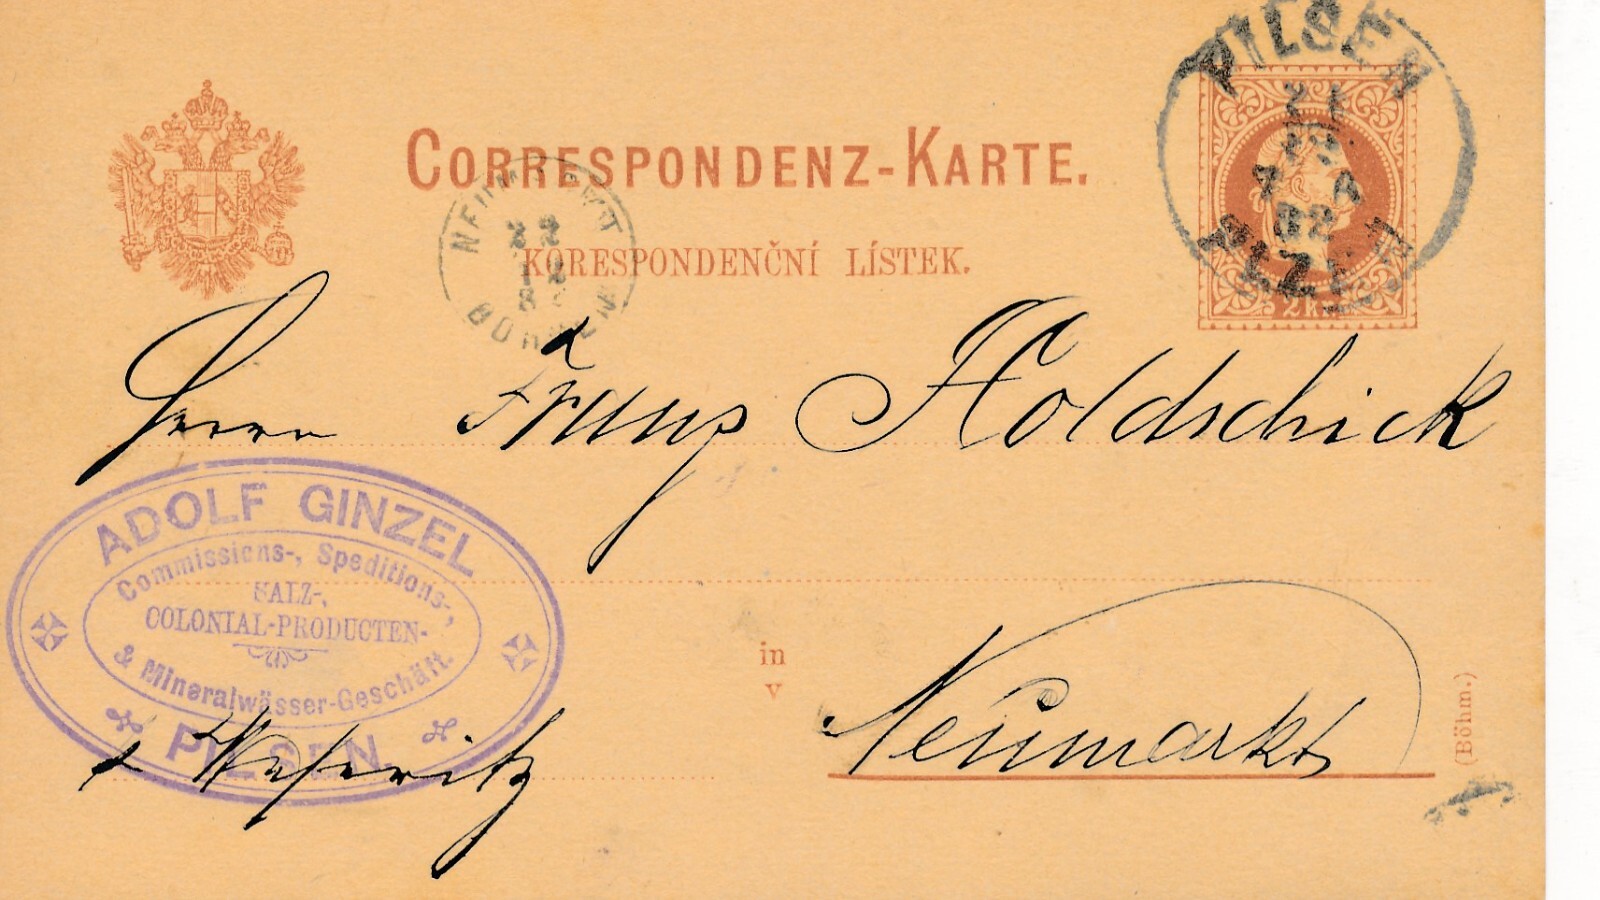 PILSEN
21
12
4 A
82
PLZEŇ
2 kr.
CORRESPONDENZ-KARTE.
KORESPONDENČNÍ LÍSTEK.
NEUMARKT
BÖHMEN
Herrn Franz Holdschick
ADOLF GINZEL
Commissions-, Speditions-,
SALZ-,
COLONIAL-PRODUCTEN-
& Mineralwässer-Geschäft.
PILSEN
in
v
Neumarkt
Weseritz
(Böhm.)